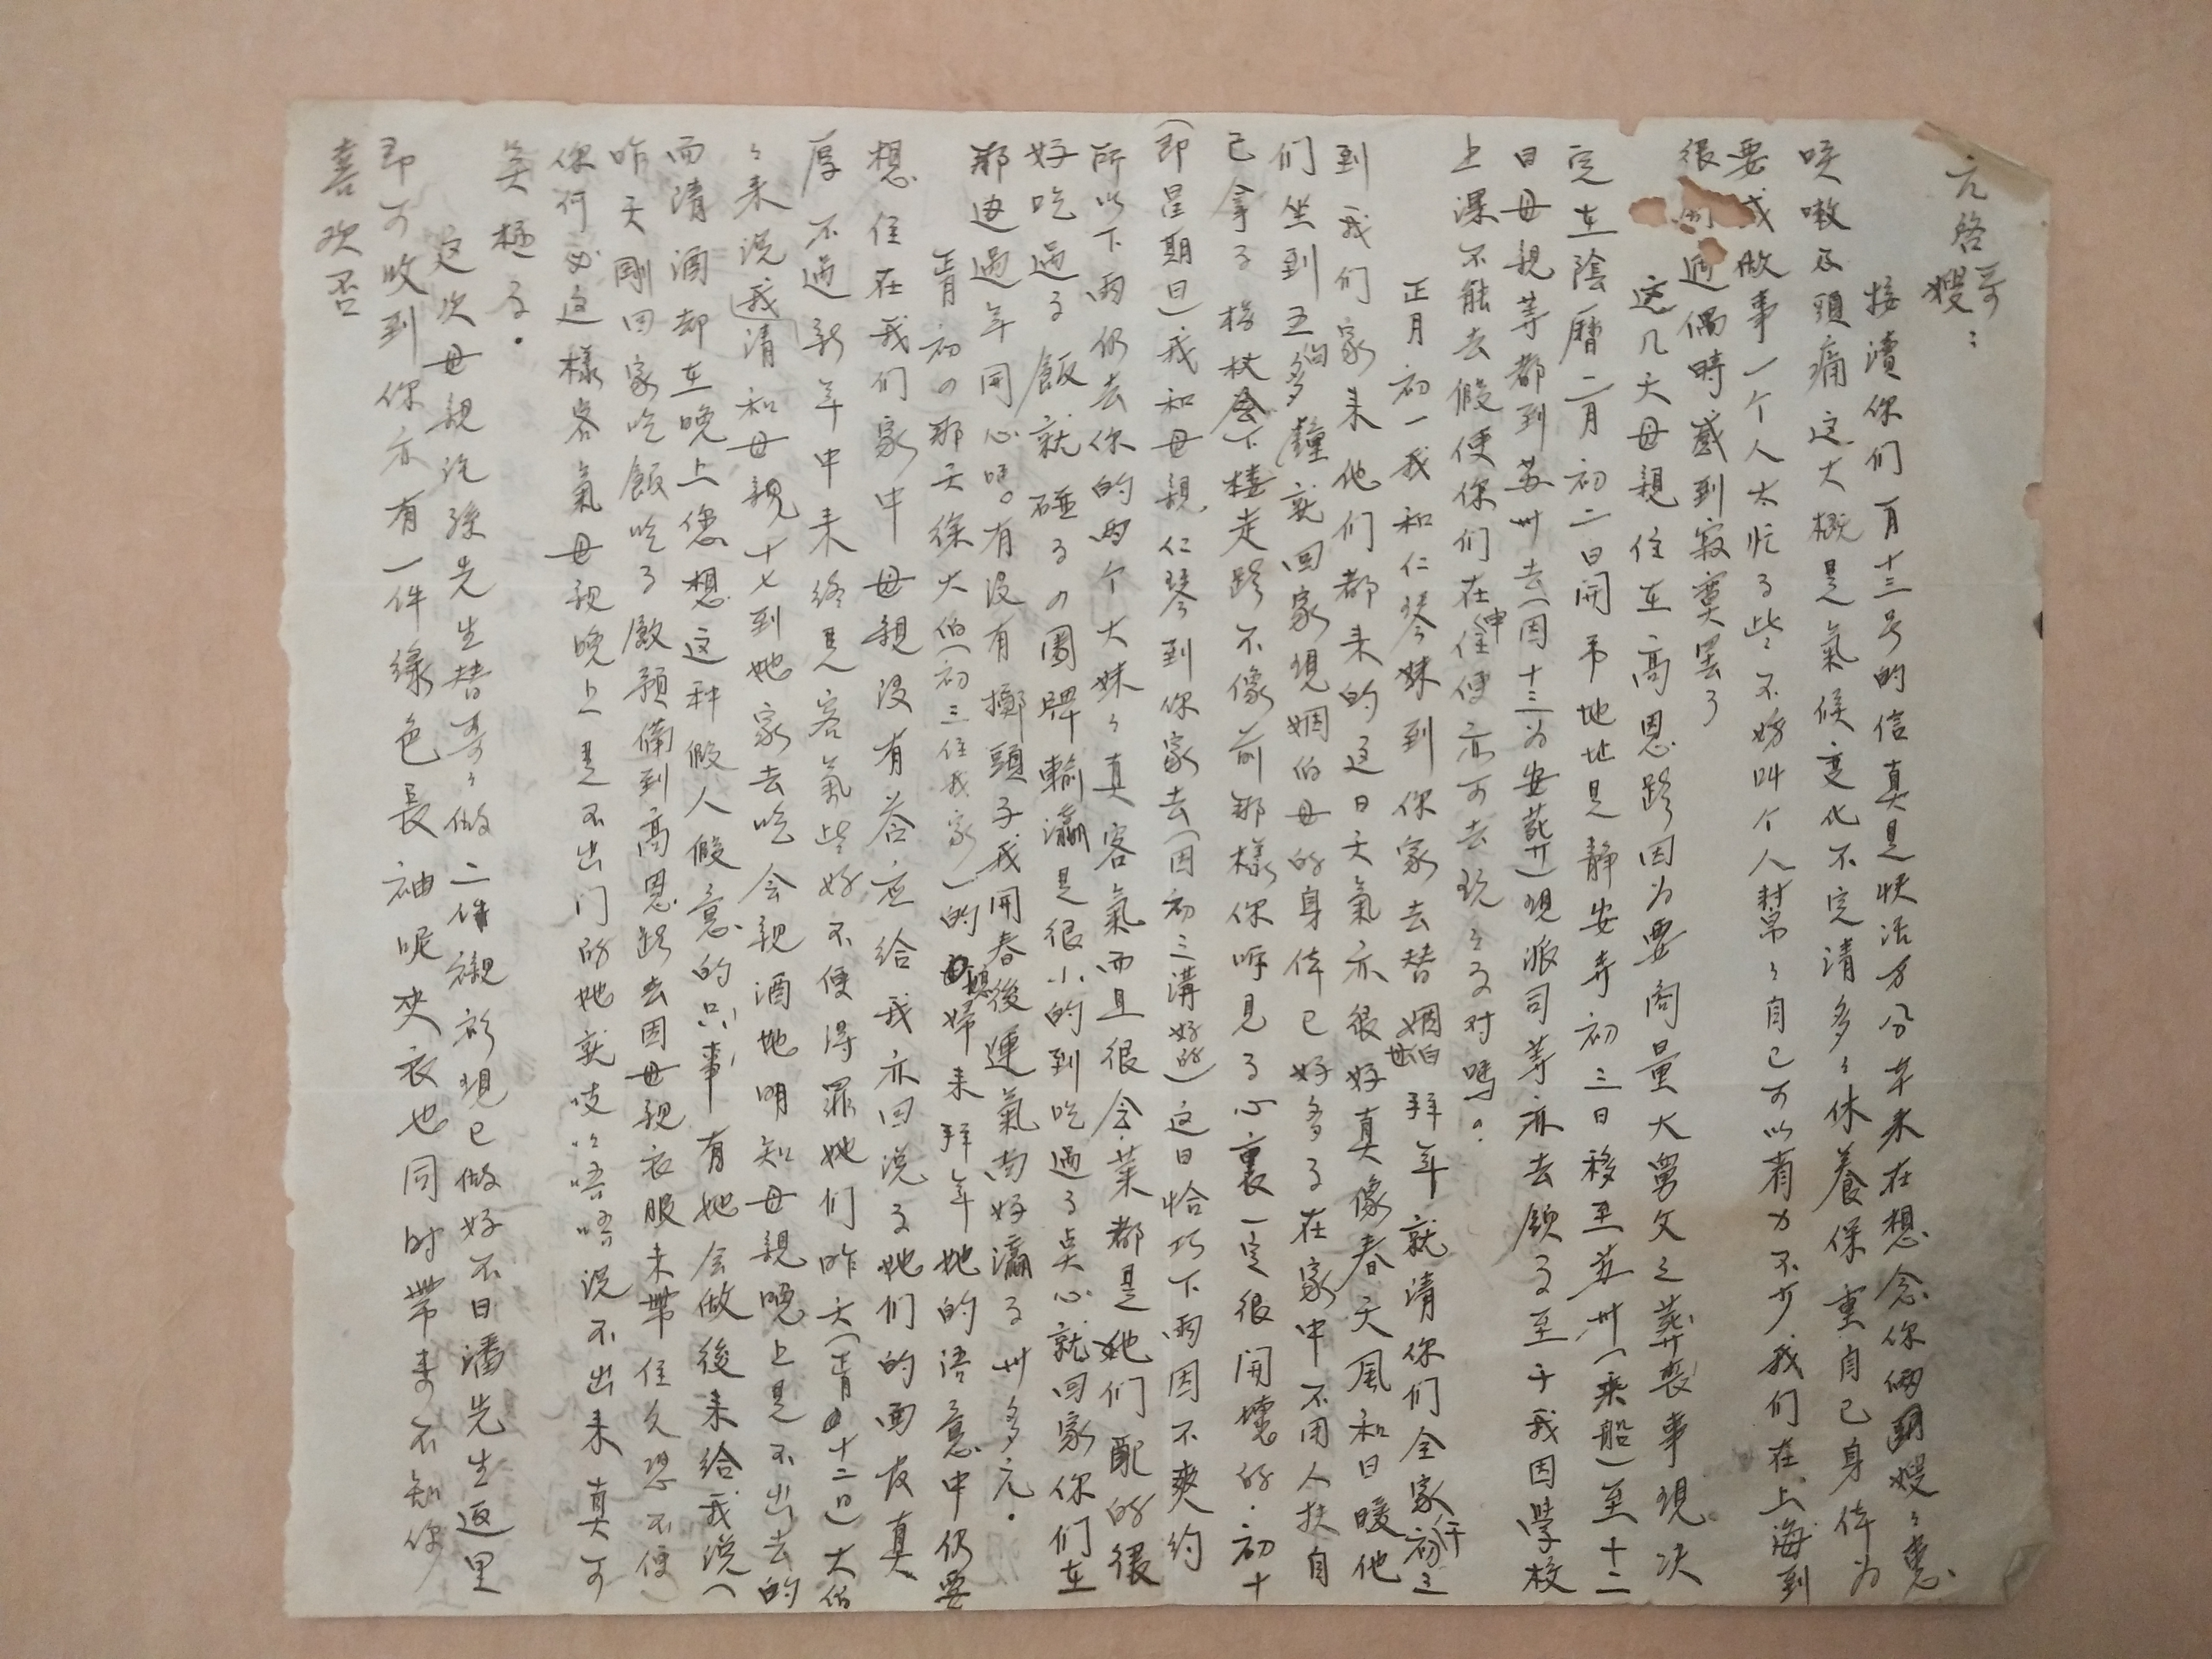 元啓哥嫂：
接讀你们一月十三号的信真是快活万分年来在想念你俩嫂々患
咳嗽及頭痛这大概是氣候变化不定请多多休養保重自己身体为
要或做事一个人太忙了些不妨叫个人幫々自己可以省力不少我们在上海到
很 遇偶時感到寂寞罢了
这几天母親住在高恩路因为要商量大舅父之葬喪事現决
定在陰曆二月初二日開弔地址是静安寺初三日移至苏州（乘船）至十二
日母親等都到苏州去（因十三为安葬）現派司等亦去 了至于我因學校
上课不能去假使你们在申住使亦可去玩玩了对嗎？
正月初一我和仁琴妹到你家去替姻伯母拜年就请你们全家
到我们家来他们都来的这日天氣亦很好真像春天風和日暖他
们坐到五句多鐘就回家現姻伯母的身体已好多了在家中不用人扶自
己拿了 杖会下樓走路不像前那樣你听見了心裏一定很開懷的．初十
（即星期日）我和母親、仁琴到你家去（因初三講好的）这日恰巧下雨因不爽约
所以下雨仍去你的两个大妹々真客氣而且很会菜都是她们配的很
好吃过了飯就碰了四圈牌輸瀛是很小的到吃过了点心就回家你们在
那边過年開心嗎。有没有擲頭子我開春後運氣尚好瀛了卅多元．
正月初四那天徐大伯（初三住我家）的媳婦来拜年她的语意中仍要
想住在我们家中母親没有答应给我亦回说了她们的面皮真
厚不过新年中来终是客氣些好不便得罪她们昨天（正月十二日）大伯
々来说我请和母親十七到她家去吃会親酒她明知母親晚上是不出去的
而请酒却在晚上您想这种假人假意的只事有她会做後来给我说（
昨天剛回家吃飯吃了飯預備到高恩路去因母親衣服未带住久恐不便）
你何必这樣客氣母親晚上是不出门的她就吱吱唔唔说不出来真可
笑極了．
这次母親託孫先生替哥々做二件襯衫現已做好不日潘先生返里
即可收到你亦有一件綠色長袖呢夾衣也同时带来不知你
喜欢否